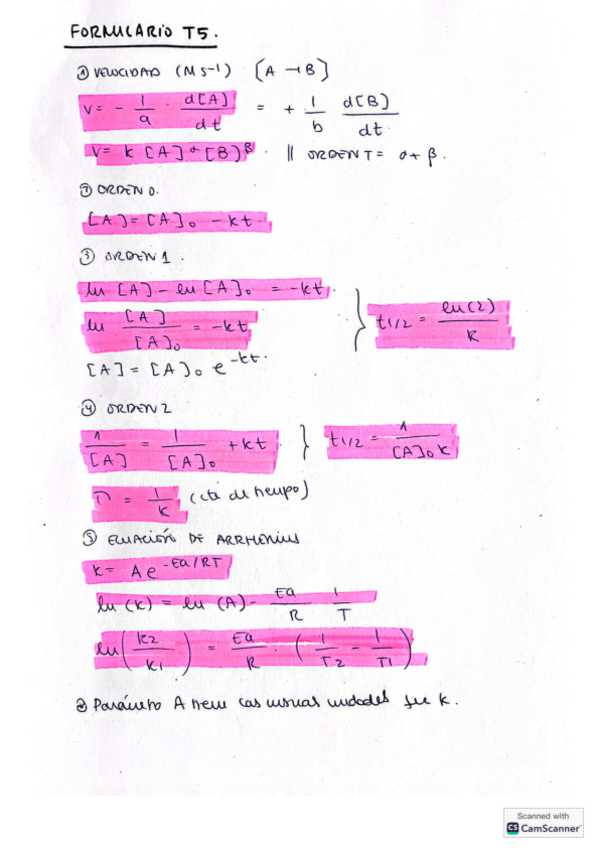 FORMULARIO T5.
① VELOCIDAD (M s-1) [A → B]
V = - 1/a · d[A]/dt = + 1/b d[B]/dt
V = k [A]^α [B]^β. || ORDEN T = α + β.
② ORDEN 0.
[A] = [A]₀ - kt.
③ ORDEN 1.
ln [A] - ln [A]₀ = -kt.
ln [A]/[A]₀ = -kt
t1/2 = ln(2)/k
[A] = [A]₀ e^-kt.
④ ORDEN 2
1/[A] = 1/[A]₀ + kt
t1/2 = 1/[A]₀ k
= 1/k (cte de tiempo)
⑤ ECUACIÓN DE ARRHENIUS
k = A e^-Ea/RT
ln (k) = ln (A) - Ea/R 1/T
ln (k2/k1) = Ea/R · (1/T2 - 1/T1)
Parámetro A tiene las mismas unidades que k.
Scanned with
CS CamScanner